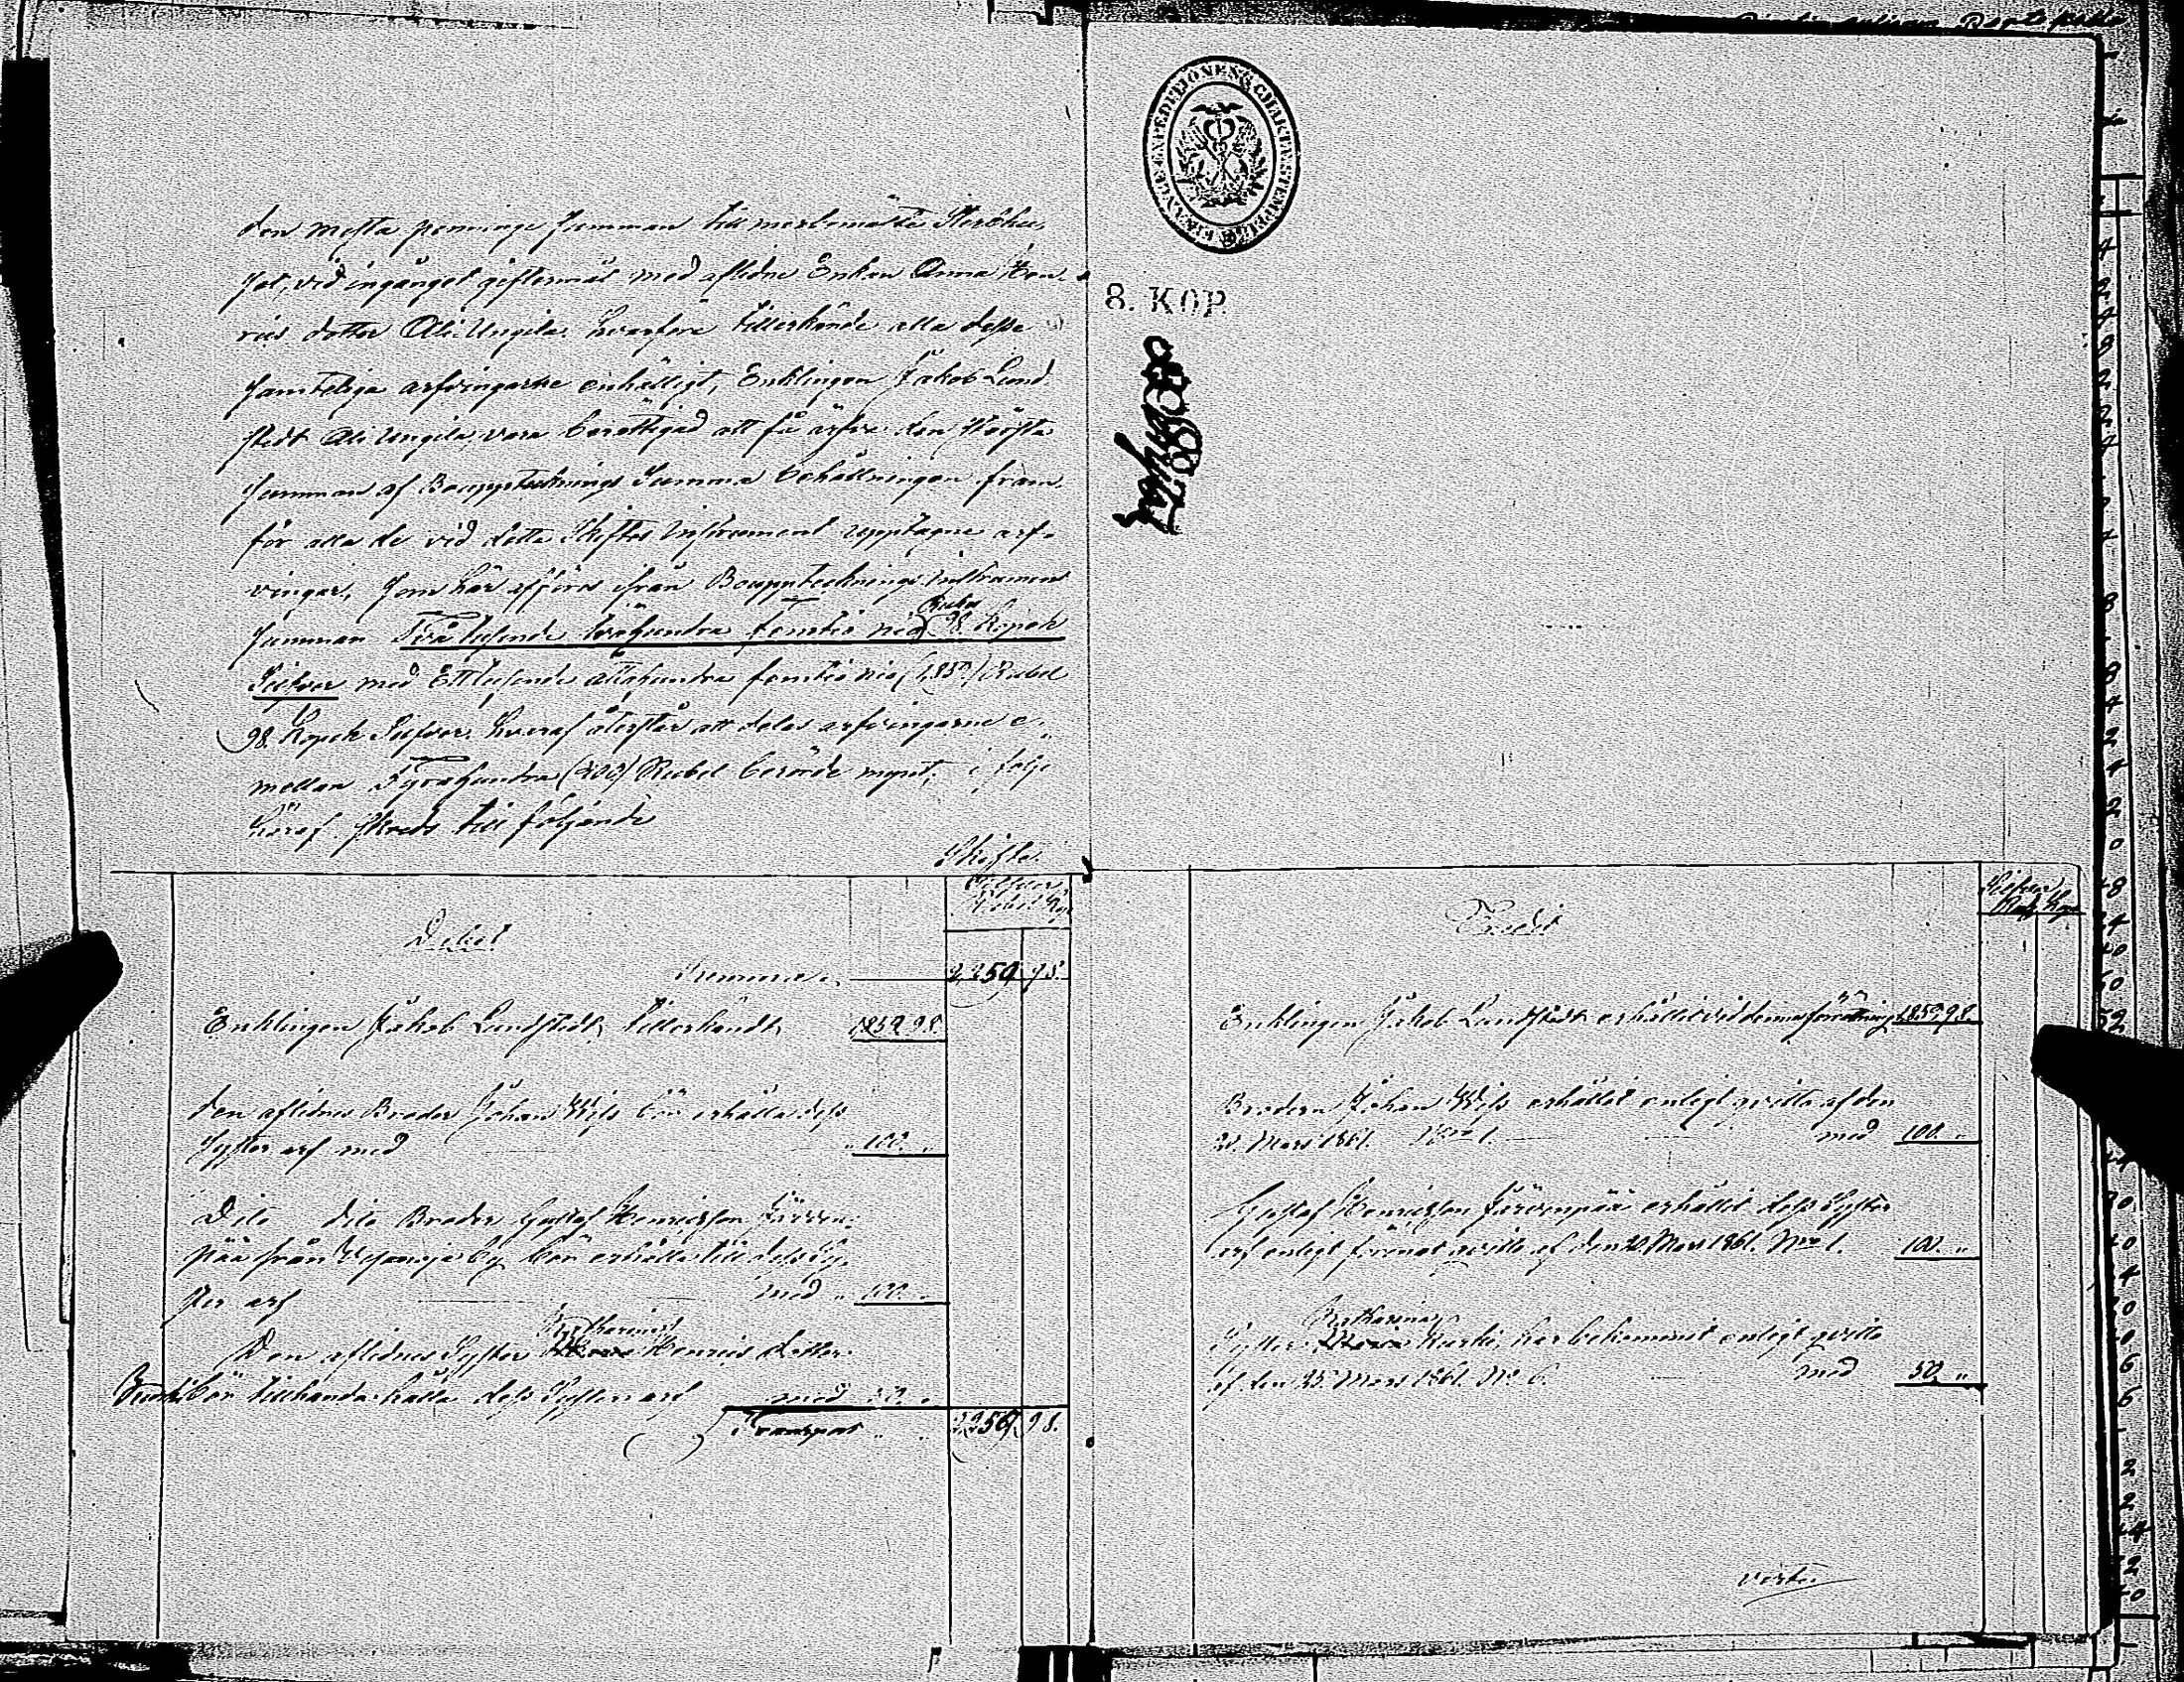 den mesta penninge summan till merbemälte Sterbhu,
set, vid ingånget giftermål med aflidne Enkan Anna Hen,
rics dotter Ali Ungila. Hvarföre tillerkände alla desse
samteliga arfvingarne enhälligt, Enklingen Jakob Lund
stedt Ali Ungila, vara berättigad att få ärfva den största
summan af Bouppteknings Summa behållningen fram
för alla de vid detta Skiftes Instrument upptagne arf-
vingar, som här afföres ifrån Bouppteckningsinstrument
summan Två tusende tvåhundra femtio nio Rubel 98 Kopek
Silfver med Ett tusende åttahundra femtio nio (1,859) Rubel
98 Kopek Silfver. Hvaraf återstår att delas arfvingarne e,
mellan Fyrahundra (400) Rubel berörde mynt, i följe
häraf skreds till följande
Skifte.
FINANCE EXPEDITIONENS CHARTÆSTEMPEL
8. KOP.
Debet
Silfver
Rubel Kop
Summa 2,259 98.
Enklingen Jakob Lundstedt, tillerkändt 1859 98
Den aflidnes Broder Johan Wiss bör erhålla dess
Syster arf med 100. "
Dito dito Broder Gustaf Henricsson Järven,
pää från by bör erhålla till dess Sy,
ster arf med " 100. "
Den aflidnes Syster Katharina Henrics dotter
Kurki bör tillhanda hålla dess Syster arf med 50. "
Transport " " 2,259 98.
Credit
Silfver
Rub Kop
Enklingen Jakob Lundstedt erhållit vid denna förrättning 1859 98
Brodern Johan Wiss erhållit enligt qvitto af den
20. Mars 1861. Nro 1. med 100. "
Gustaf Henricsson Järvenpää erhållit dess Syster
arf enligt förenat qvitto af den 20 Mars 1861. Nro 1. 100. "
Syster Katharina Kurki, har bekommit enligt qvitto
af den 25 Mars 1861. No 6. med 50 "
vert.